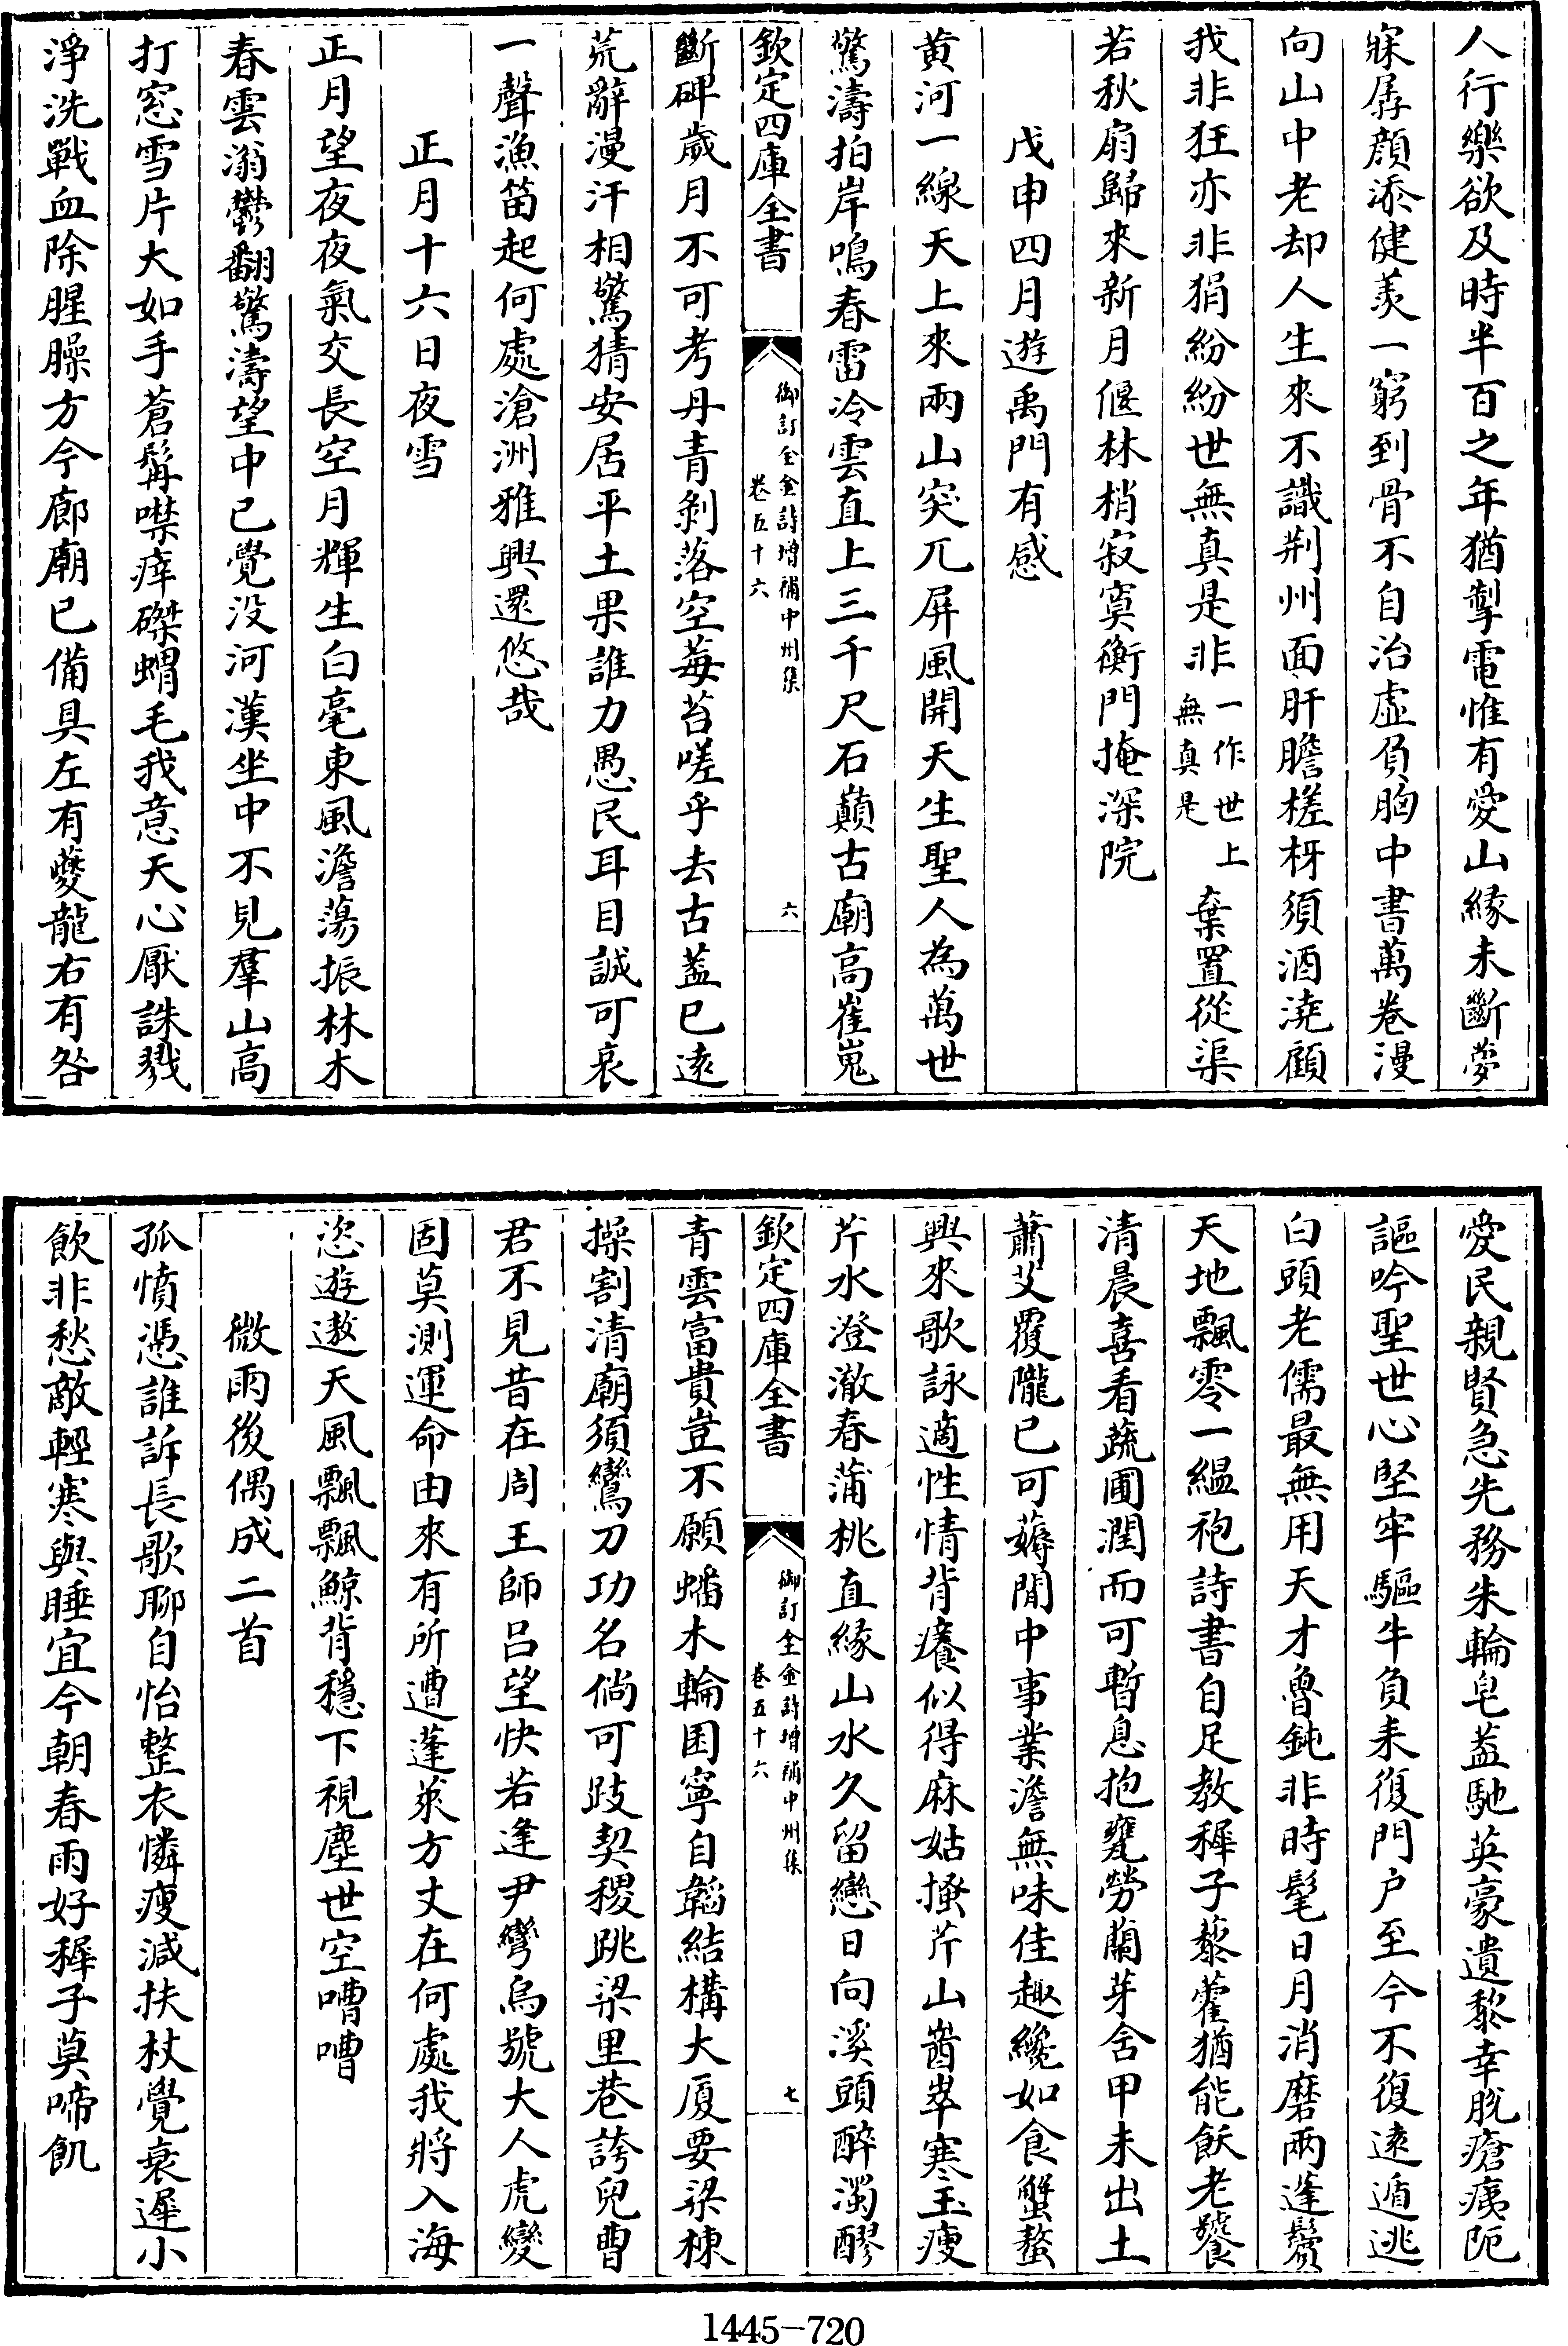 人行樂欲及時半百之年猶掣電惟有愛山緣未斷夢
寐孱顔添健羡一窮到骨不自治虚負胸中書萬卷漫
向山中老却人生來不識荆州面肝膽槎枒須酒澆顧
我非狂亦非狷紛紛世無真是非一作世上無真是棄置從渠
若秋扇歸來新月偃林梢寂寞衡門掩深院
戊申四月遊禹門有感
黄河一線天上來兩山突兀屏風開天生聖人為萬世
驚濤拍岸鳴春雷冷雲直上三千尺石巔古廟高崔嵬
欽定四庫全書
御訂全金詩增補中州集
卷五十六
六
斷碑歲月不可考丹青剥落空莓苔嗟乎去古葢已逺
荒辭漫汗相驚猜安居平土果誰力愚民耳目誠可哀
一聲漁笛起何處滄洲雅興還悠哉
正月十六日夜雪
正月望夜夜氣交長空月輝生白毫東風澹蕩振林木
春雲滃鬱翻驚濤望中已覺没河漢坐中不見羣山高
打窓雪片大如手蒼髯噤痒磔蝟毛我意天心厭誅戮
淨洗戰血除腥臊方今廊廟已備具左有夔龍右有咎
愛民親賢急先務朱輪皂葢馳英豪遺黎幸脱瘡痍阨
謳吟聖世心堅牢驅牛負耒復門户至今不復逺遁逃
白頭老儒最無用天才魯鈍非時髦日月消磨兩蓬鬢
天地飄零一緼袍詩書自足教穉子藜藿猶能飫老饕
清晨喜看蔬圃潤而可暫息抱甕勞蘭芽舍甲未出土
蕭艾覆隴已可薅閒中事業澹無味佳趣纔如食蟹螯
興來歌詠適性情背癢似得麻姑搔芹山崷崒寒玉瘦
芹水澄澈春蒲桃直緣山水久留戀日向溪頭醉濁醪
欽定四庫全書
御訂全金詩增補中州集
卷五十六
七
青雲富貴豈不願蟠木輪囷寧自韜結構大厦要梁棟
操割清廟須鸞刀功名倘可跂契稷跳梁里巷誇兒曹
君不見昔在周王師吕望快若逢尹彎烏號大人虎變
固莫測運命由來有所遭蓬萊方丈在何處我將入海
恣遊遨天風飄飄鯨背穩下視塵世空嘈嘈
微雨後偶成二首
孤憤憑誰訴長歌聊自怡整衣憐瘦減扶杖覺衰遲小
飲非愁敵輕寒與睡宜今朝春雨好穉子莫啼飢
1445-720